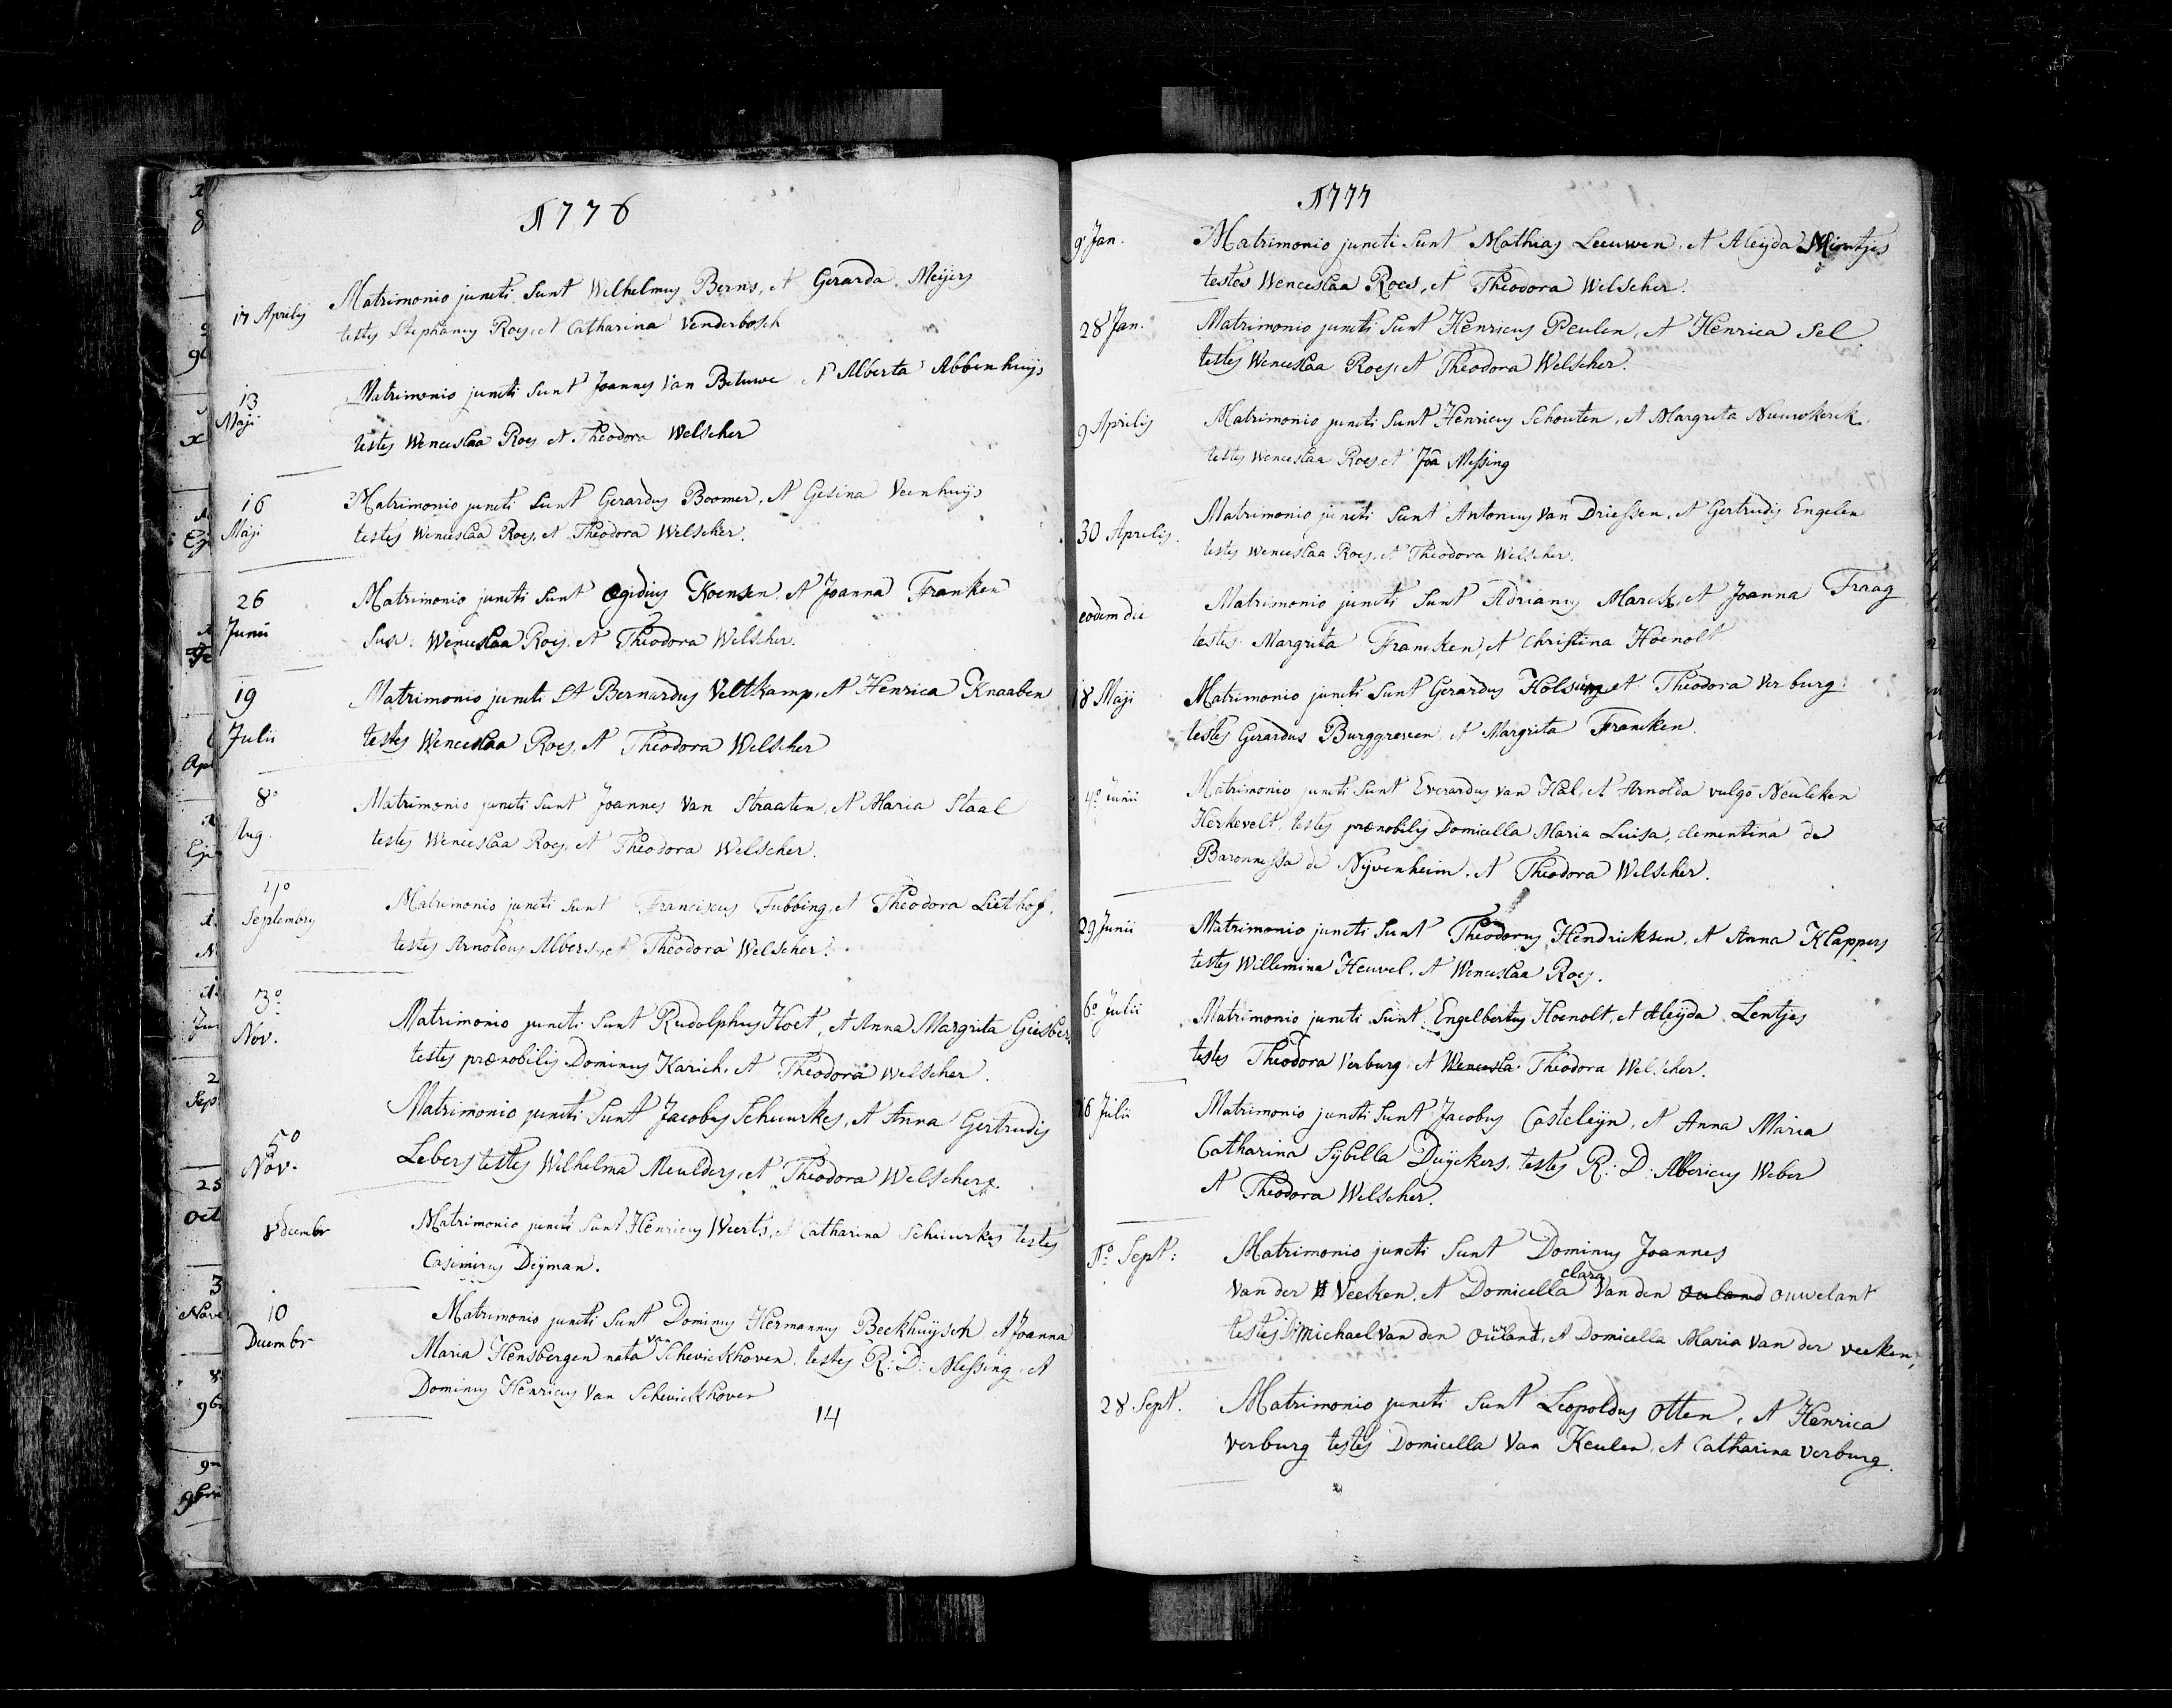 1776
17 Aprilis Matrimonio juncti sunt Wilhelmus Berns, et Gerarda Meijers
testes Stephanus Roes, et Catharina Venderbosch
13 Maji Matrimonio juncti sunt Joannes Van Betuwe et Alberta Abbenhuijs
testes Wenceslaa Roes et Theodora Welscher
16 Maji Matrimonio juncti sunt Gerardus Boomer, et Gesina Veenhuijs
testes Wenceslaa Roes, et Theodora Welscher.
26 Junii Matrimonio juncti sunt Ægidius Koensen et Joanna Franken
Wenceslaa Roes, et Theodora Welscher.
19 Julii Matrimonio juncti St Bernardus Veltkamp, et Henrica Knaaben
testes Wenceslaa Roes, et Theodora Welscher
8o Aug. Matrimonio juncti sunt Joannes Van Straaten, et Maria Staal
testes Wenceslaa Roes, et Theodora Welscher.
4o Septembris Matrimonio juncti sunt Franciscus Tubbing, et Theodora Liethof.
testes Arnoldus Albers, et Theodora Welscher.
3o Nov. Matrimonio juncti sunt Rudolphus Hoet, et Anna Margrita Giesbers
testes prænobilis Dominus Karich, et Theodora Welscher.
5o Nov. Matrimonio juncti sunt Jacobus Schuurkes, et Anna Gertrudis
Lebers testes Wilhelma Meulders, et Theodora Welscher.
8 decembr Matrimonio juncti sunt Henricus Weerts, et Catharina Schuurkes testes
Casimirus Deyman.
10 Decembr Matrimonio juncti sunt Dominus Hermannus Beekhuysch et Joanna
Maria Hensbergen nata van Schevickhoven, testes R: D: Messing, et
Dominus Henricus Van Schevickhoven
14
1777
9 Jan. Matrimonio juncti sunt Mathias Leeuwen, et Aleijda Mientjes
testes Wenceslaa Roes, et Theodora Welscher.
28 Jan. Matrimonio juncti sunt Henricus Peulen, et Henrica Sel
testes Wenceslaa Roes, et Theodora Welscher.
9 Aprilis Matrimonio juncti sunt Henricus Schouten, et Margrita Nieuwkerck.
testes Wenceslaa Roes, et Joa Messing
30 Aprilis. Matrimonio juncti sunt Antonius Van Driessen, et Gertrudis Engelen
testes Wenceslaa Roes, et Theodora Welscher.
eodem die Matrimonio juncti sunt Adrianus Marck, et Joanna Fraag
testes Margrita Francken, et Christina Hoenolt
18 Maji Matrimonio juncti sunt Gerardus Holsing et Theodora Verburg
testes Gerardus Burggreven, et Margrita Francken.
4o Junii Matrimonio juncti sunt Everardus van Hal, et Arnolda vulgo Neuleken
Herkevelt, testes prænobilis Domicella Maria Luisa, clementina de
Baronnessa de Nijvenheim, et Theodora Welscher.
29 Junii Matrimonio juncti sunt Theodorus Hendricksen, et Anna Klappers
testes Willemina Heuvel, et Wenceslaa Roes.
6o Julii Matrimonio juncti sunt Engelbertus Hoenolt, et Aleijda Lentjes
testes Theodora Verburg et Wencesla Theodora Welscher.
16 Julii Matrimonio juncti sunt Jacobus Casteleijn, et Anna Maria
Catharina Sybilla Duijckers, testes R: D: Albericus Weber
et Theodora Welscher.
1o Sept: Matrimonio juncti sunt Dominus Joannes
Van der Veeken, et Domicella clara Van den Ouland ouwelant
testes D: Michael van den Ouwelant, et Domicella Maria Van der veeken,
28 Sept. Matrimonio juncti sunt Leopoldus Otten, et Henrica
Verburg testes Domicella Van Keulen, et Catharina Verburg.